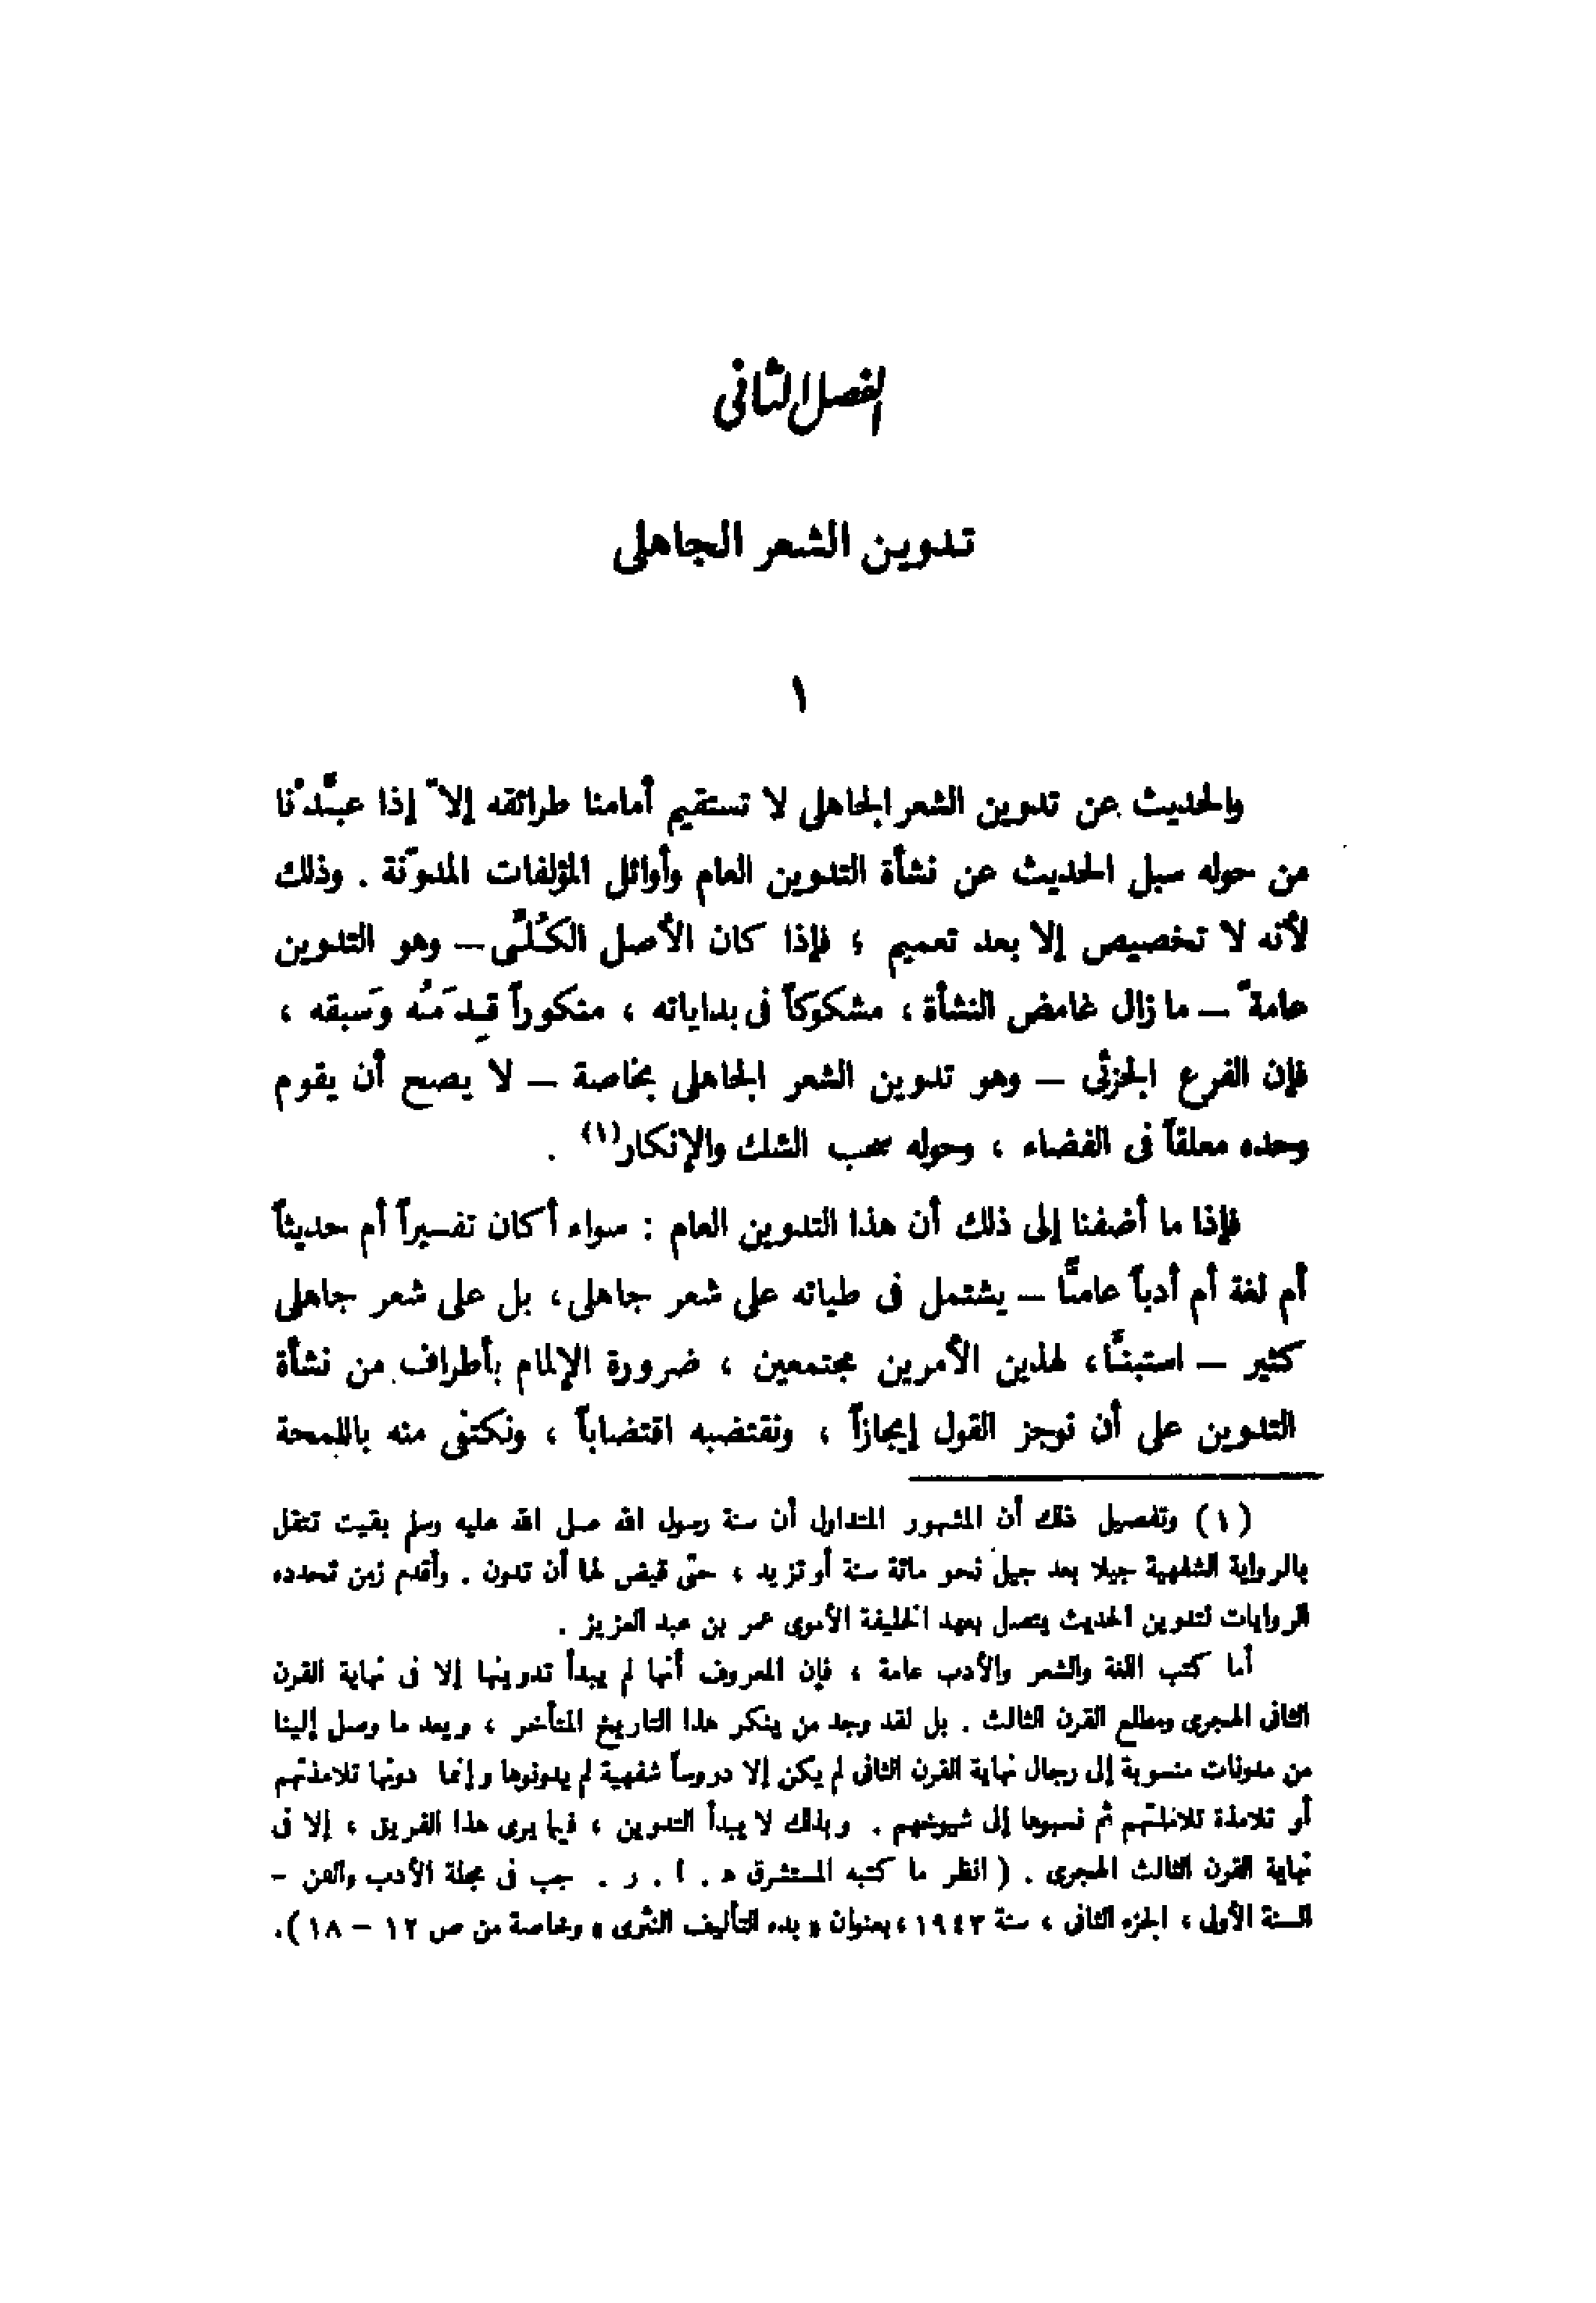 الفصل الثانى
تدوين الشعر الجاهلى
١
والحديث عن تدوين الشعر الجاهلى لا تستقيم أمامنا طرائقه إلاّ إذا عبَّدْنا
من حوله سبل الحديث عن نشأة التدوين العام وأوائل المؤلفات المدوّنة . وذلك
لأنه لا تخصيص إلا بعد تعميم ؛ فإذا كان الأصل الكُلِّى – وهو التدوين
عامةً – ما زال غامض النشأة ، مشكوكاً فى بداياته ، منكوراً قِدَمُه وَسبقه ،
فإن الفرع الجزئى – وهو تدوين الشعر الجاهلى بخاصة – لا يصح أن يقوم
وحده معلقاً فى الفضاء ، وحوله سحب الشك والإنكار(١) .
فإذا ما أضفنا إلى ذلك أن هذا التدوين العام : سواء أكان تفسيراً أم حديثاً
أم لغة أم أدباً عامًّا – يشتمل فى طياته على شعر جاهلى ، بل على شعر جاهلى
كثير – استبنَّا ، لهذين الأمرين مجتمعين ، ضرورة الإلمام بأطراف من نشأة
التدوين على أن نوجز القول إيجازاً ، ونقتضبه اقتضاباً ، ونكتفى منه باللمحة
(١) وتفصيل ذلك أن المشهور المتداول أن سنة رسول الله صلى الله عليه وسلم بقيت تتنقل
بالرواية الشفهية جيلا بعد جيل نحو مائة سنة أو تزيد ، حتى قيض لها أن تدون . وأقدم زمن تحدده
الروايات لتدوين الحديث يتصل بعهد الخليفة الأموى عمر بن عبد العزيز .
أما كتب اللغة والشعر والأدب عامة ، فإن المعروف أنها لم يبدأ تدوينها إلا فى نهاية القرن
الثانى الهجرى ومطلع القرن الثالث . بل لقد وجد من ينكر هذا التاريخ المتأخر ، ويعد ما وصل إلينا
من مدونات منسوبة إلى رجال نهاية القرن الثانى لم يكن إلا دروساً شفهية لم يدونوها وإنما دونها تلامذتهم
أو تلامذة تلامذتهم ثم نسبوها إلى شيوخهم . وبذلك لا يبدأ التدوين ، فيما يرى هذا الفريق ، إلا فى
نهاية القرن الثالث الهجرى . ( انظر ما كتبه المستشرق ه . ا . ر . جب فى مجلة الأدب والفن –
السنة الأولى ، الجزء الثانى ، سنة ١٩٤٣ ، بعنوان « بدء التأليف النثرى » وبخاصة من ص ١٢ – ١٨ ).